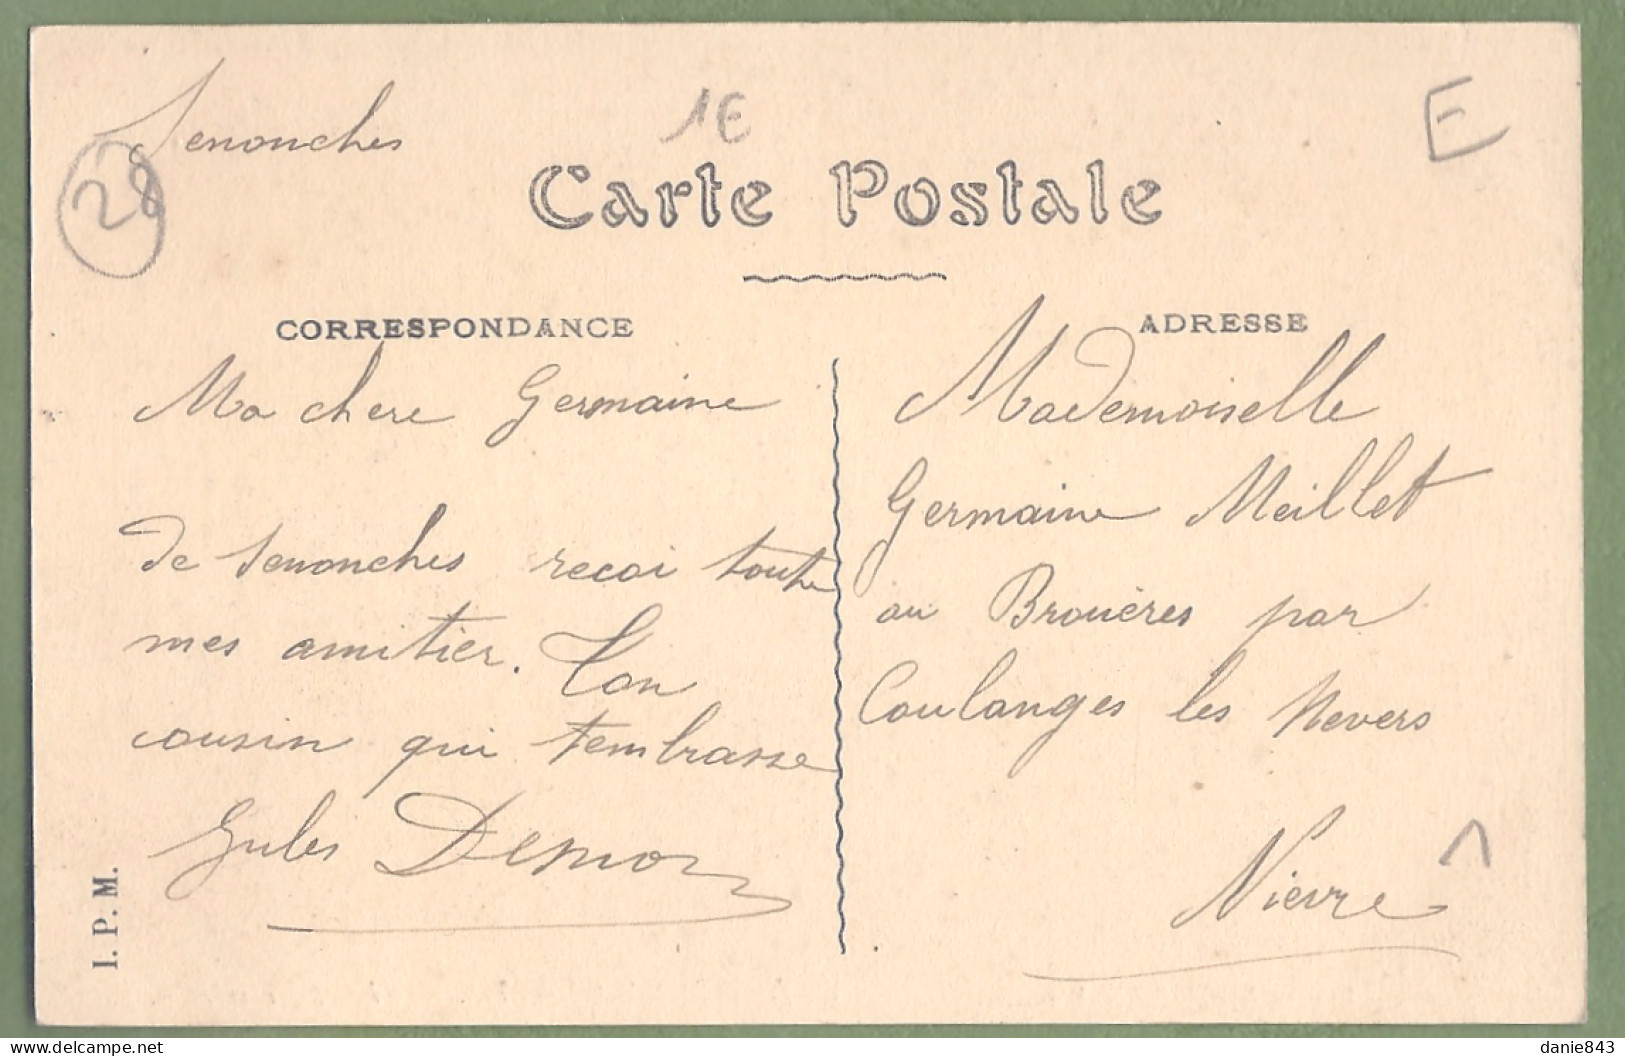 Senonches
1E
E
28
Carte Postale
CORRESPONDANCE
ADRESSE
Ma chere Germaine
De Senonches recoi toute
mes amitier. Ton
cousin qui t'embrasse
Jules
I. P. M.
Mademoiselle
Germaine Meillet
au Brouères par
Coulanges les Nevers
Nievre
delcampe.net
danie843